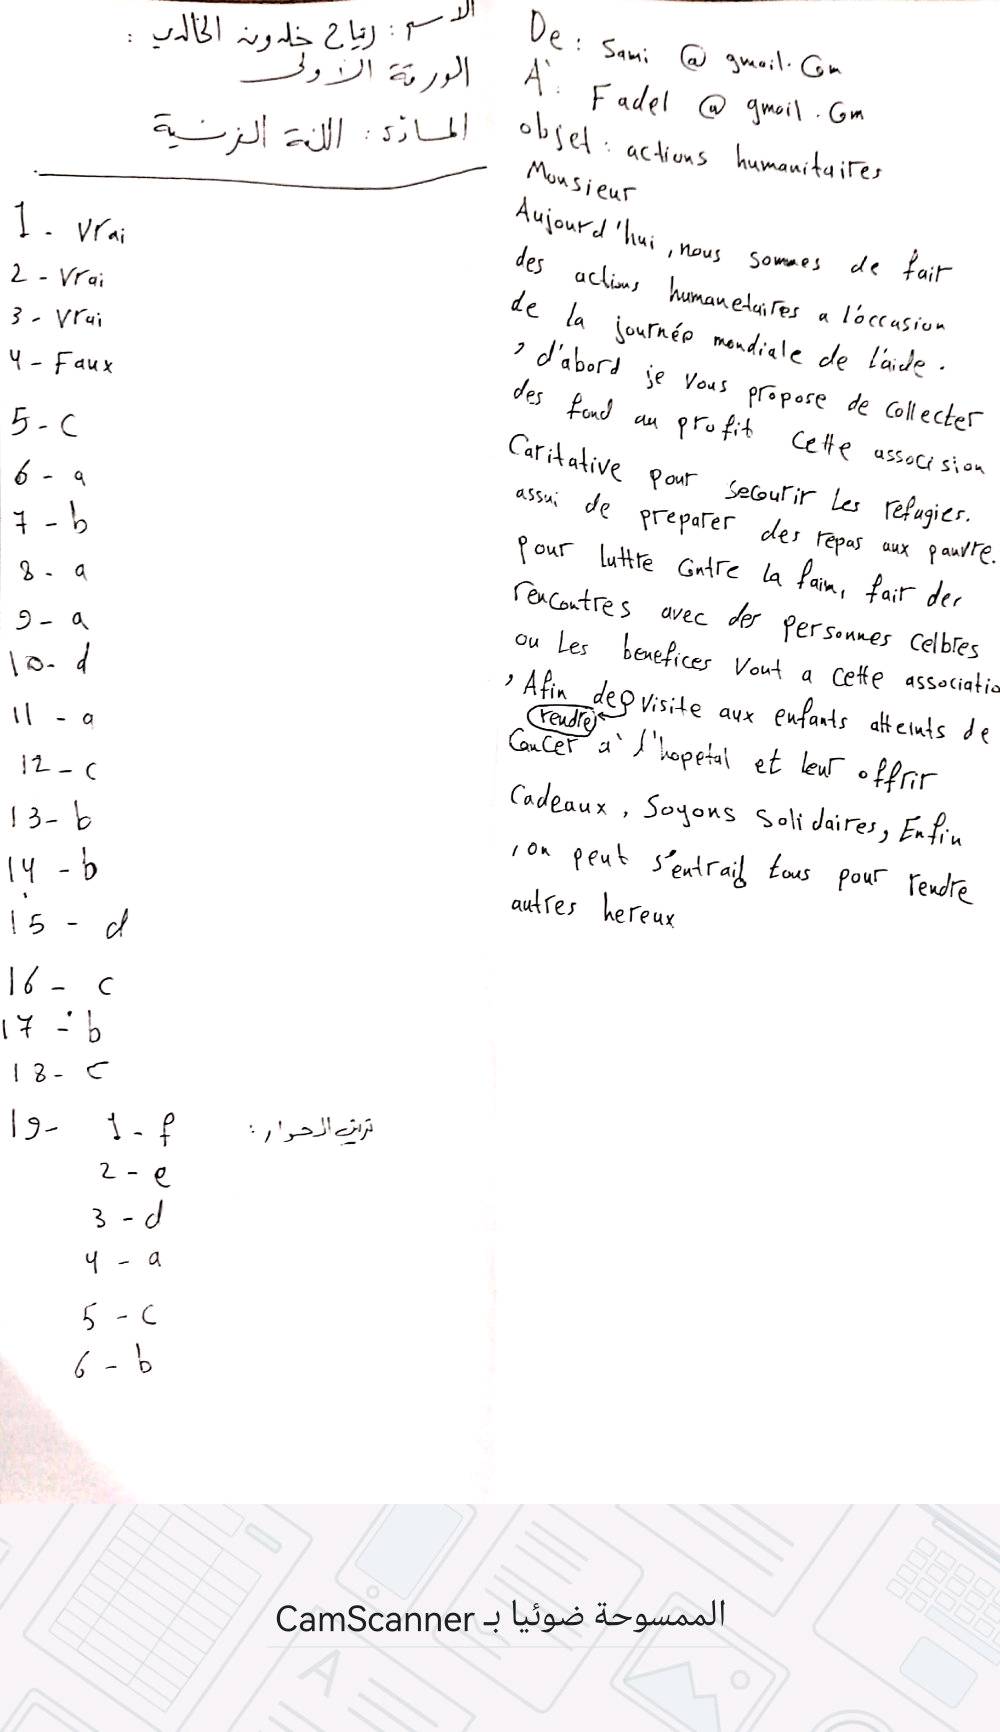 الاسم : رباح خلدون الخالدي :
الورقة الأولى
المادة : اللغة الفرنسية
1 - Vrai
2 - Vrai
3 - Vrai
4 - Faux
5 - C
6 - a
7 - b
8 - a
9 - a
10 - d
11 - a
12 - c
13 - b
14 - b
15 - d
16 - c
17 - b
18 - c
19 - 1 - f ترتيب الحوار :
2 - e
3 - d
4 - a
5 - c
6 - b
De : Sami @ gmail . Com
A` : Fadel @ gmail . Com
objet : actions humanitaires
Monsieur
Aujourd'hui, nous sommes de fair
des actions humanetaires a l'occasion
de la journée mondiale de l'aide .
, d'abord je vous propose de collecter
des fond au profit cette assocision
Caritative pour secourir Les refugies.
assui de preparer des repas aux pauvre.
pour luttre Contre la faim, fair des
rencontres avec des personnes celbres
ou Les benefices Vout a cette associatio
, Afin de visite aux enfants atteints de
rendre
Cancer a` l'hopetal et leur offrir
Cadeaux, Soyons Solidaires, Enfin
, on peut s'entraid tous pour rendre
autres hereux
الممسوحة ضوئيا بـ CamScanner